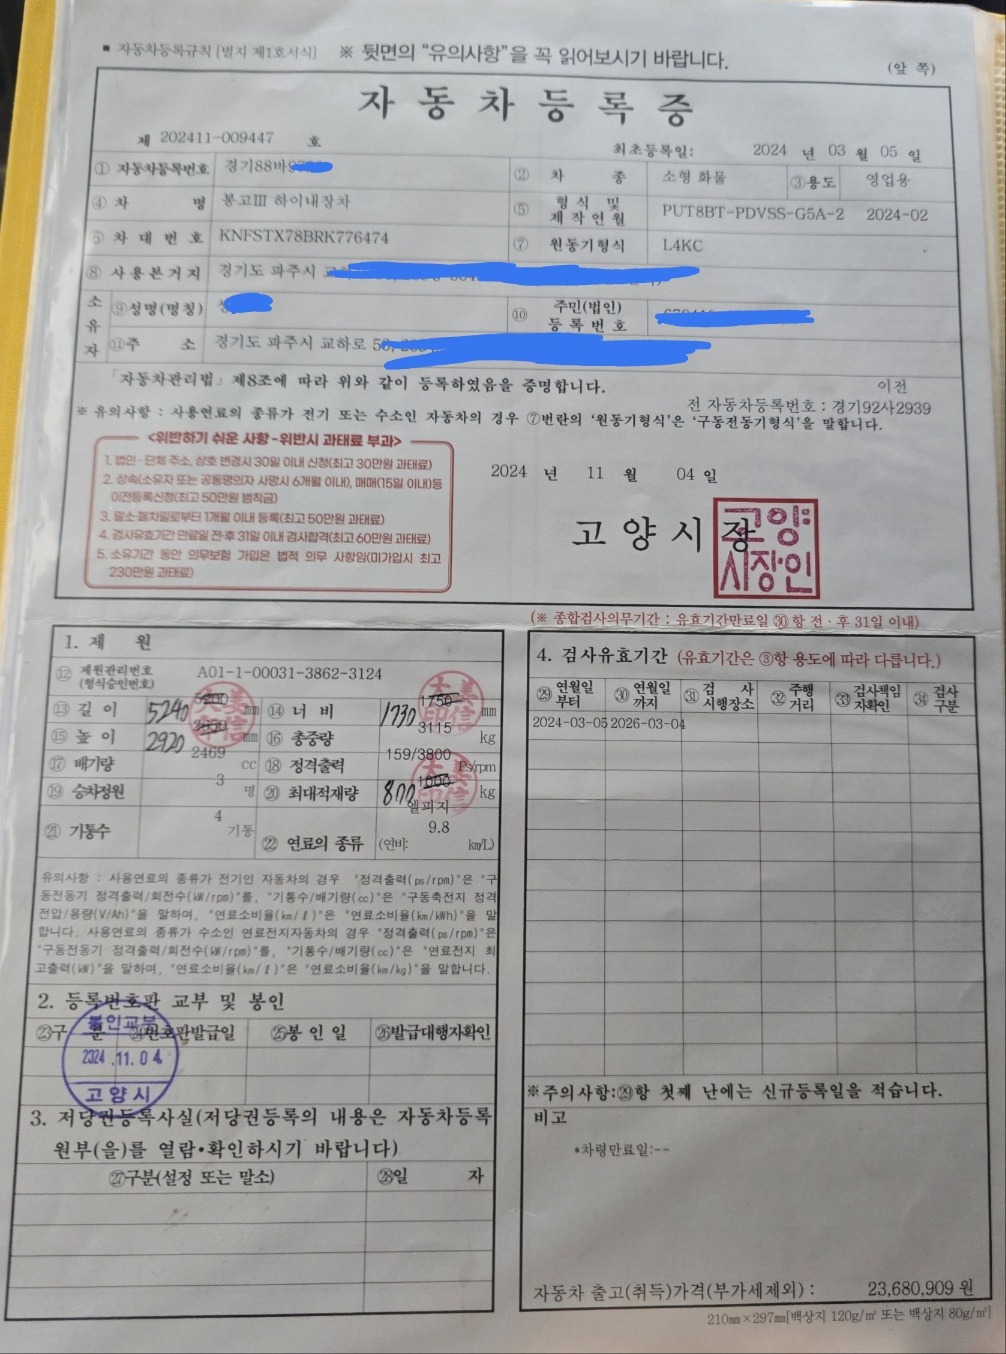 ■ 자동차등록규칙 [별지 제1호서식] ※ 뒷면의 "유의사항"을 꼭 읽어보시기 바랍니다.
(앞 쪽)
자동차등록증
제 202411-009447 호
최초등록일: 2024 년 03 월 05 일
① 자동차등록번호 경기88바 ② 차 종 소형 화물 ③용도 영업용
④ 차 명 봉고Ⅲ 하이내장차 ⑤ 형식 및 제작연월 PUT8BT-PDVSS-G5A-2 2024-02
⑥ 차대번호 KNFSTX78BRK776474 ⑦ 원동기형식 L4KC
⑧ 사용본거지 경기도 파주시
소유자 ⑨성명(명칭) ⑩ 주민(법인)등록번호
⑪주 소 경기도 파주시 교하로
「자동차관리법」 제8조에 따라 위와 같이 등록하였음을 증명합니다.
이전
전 자동차등록번호 : 경기92사2939
※ 유의사항 : 사용연료의 종류가 전기 또는 수소인 자동차의 경우 ⑦번란의 '원동기형식'은 '구동전동기형식'을 말합니다.
<위반하기 쉬운 사항-위반시 과태료 부과>
1. 법인·단체 주소, 상호 변경시 30일 이내 신청(최고 30만원 과태료)
2. 상속(소유자 또는 공동명의자 사망시 6개월 이내), 매매(15일 이내)등
이전등록신청(최고 50만원 범칙금)
3. 말소·폐차일로부터 1개월 이내 등록(최고 50만원 과태료)
4. 검사유효기간 만료일 전·후 31일 이내 검사합격(최고 60만원 과태료)
5. 소유기간 동안 의무보험 가입은 법적 의무 사항임(미가입시 최고
230만원 과태료)
2024 년 11 월 04 일
고양시장
고양시장인
(※ 종합검사의무기간 : 유효기간만료일 ㉚ 항 전·후 31일 이내)
1. 제 원
⑫ 제원관리번호 (형식승인번호) A01-1-00031-3862-3124
⑬ 길 이 5240 mm ⑭ 너 비 1750 1730 mm
⑮ 높 이 2920 mm ⑯ 총중량 3115 kg
⑰ 배기량 2469 cc ⑱ 정격출력 159/3800 Ps/rpm
⑲ 승차정원 3 명 ⑳ 최대적재량 1000 800 kg
㉑ 기통수 4 기통 ㉒ 연료의 종류 엘피지 (연비: 9.8 km/L)
유의사항 : 사용연료의 종류가 전기인 자동차의 경우 "정격출력(ps/rpm)"은 "구
동전동기 정격출력/회전수(kW/rpm)"를, "기통수/배기량(cc)"은 "구동축전지 정격
전압/용량(V/Ah)"을 말하며, "연료소비율(km/ℓ)"은 "연료소비율(km/kWh)"을 말
합니다. 사용연료의 종류가 수소인 연료전지자동차의 경우 "정격출력(ps/rpm)"은
"구동전동기 정격출력/회전수(kW/rpm)"를, "기통수/배기량(cc)"은 "연료전지 최
고출력(kW)"을 말하며, "연료소비율(km/ℓ)"은 "연료소비율(km/kg)"을 말합니다.
2. 등록번호판 교부 및 봉인
㉓구 분 ㉔번호판발급일 ㉕봉 인 일 ㉖발급대행자확인
봉인교부
2024.11.04
고양시
3. 저당권등록사실(저당권등록의 내용은 자동차등록
원부(을)를 열람·확인하시기 바랍니다)
㉗구분(설정 또는 말소) ㉘일 자
4. 검사유효기간 (유효기간은 ③항 용도에 따라 다릅니다.)
㉙ 연월일부터 ㉚ 연월일까지 ㉛ 검사시행장소 ㉜ 주행거리 ㉝ 검사책임자확인 ㉞ 검사구분
2024-03-05 2026-03-04
※주의사항:㉙항 첫째 난에는 신규등록일을 적습니다.
비고
*차령만료일:--
자동차 출고(취득)가격(부가세제외) : 23,680,909 원
210mm×297mm[백상지 120g/㎡ 또는 백상지 80g/㎡]